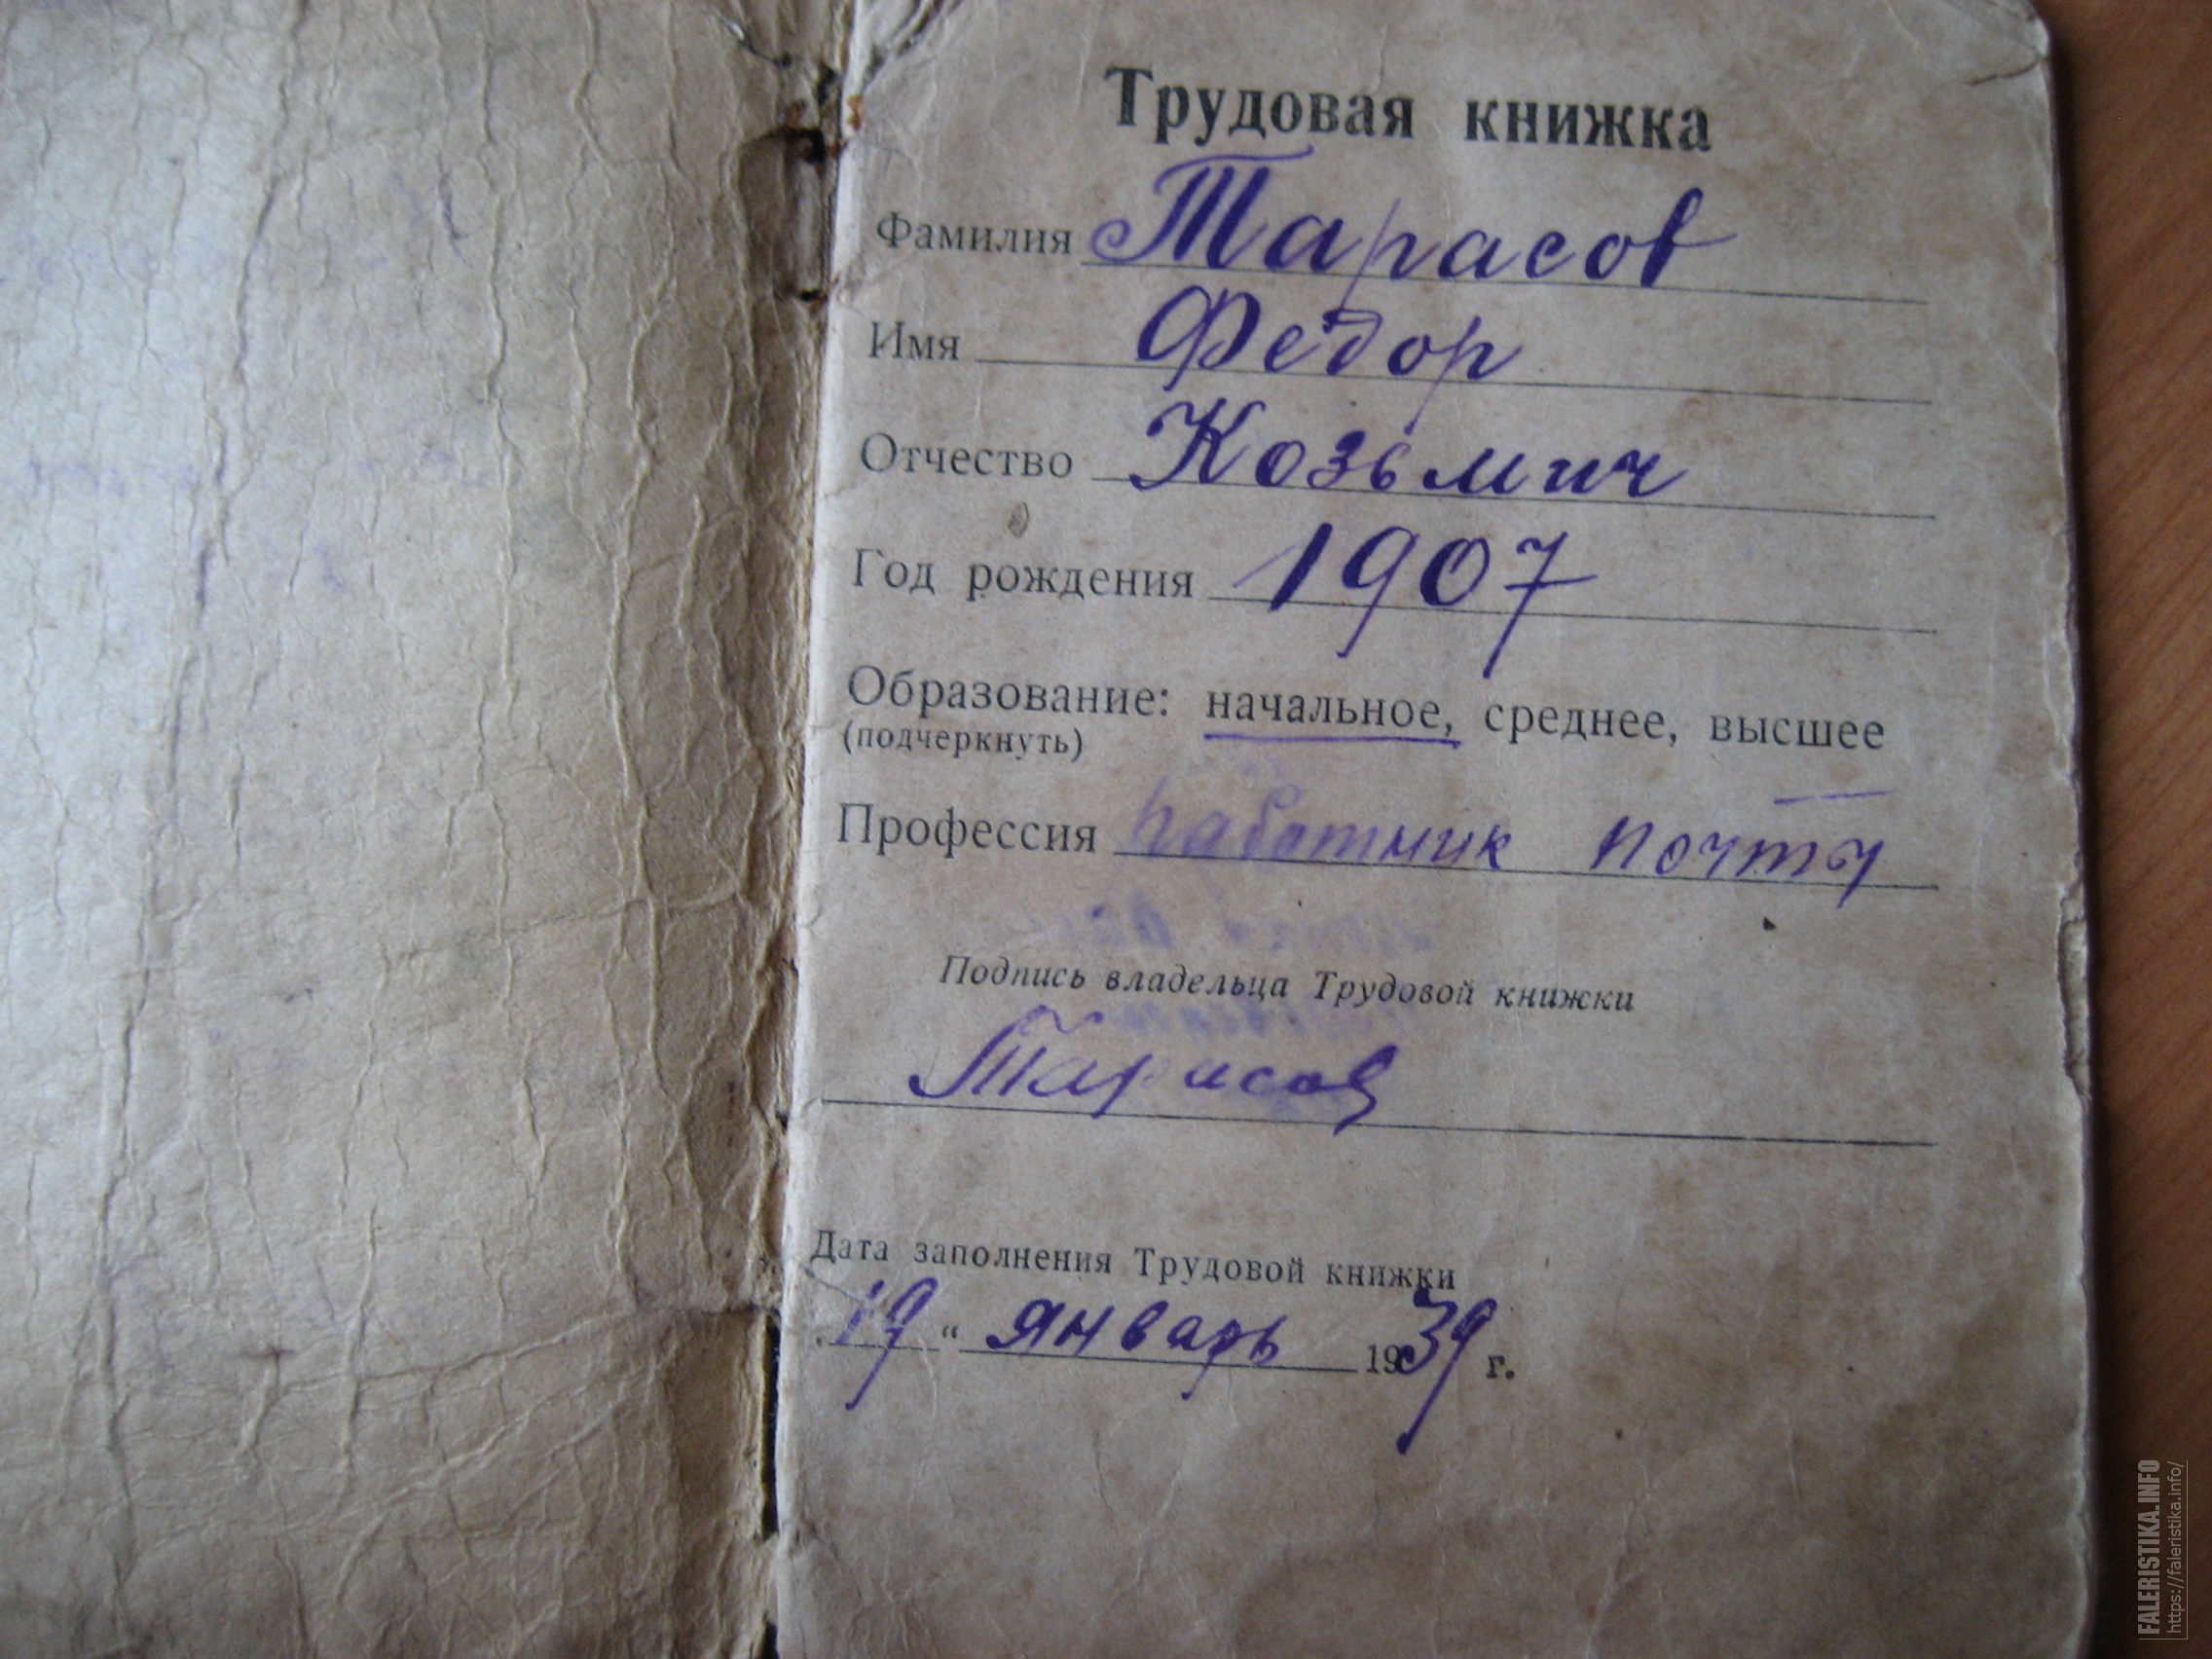 Трудовая книжка
Фамилия Тарасов
Имя Федор
Отчество Козьмич
Год рождения 1907
Образование: начальное, среднее, высшее
(подчеркнуть)
Профессия работник почты
Подпись владельца Трудовой книжки
Тарасов
Дата заполнения Трудовой книжки
19 “ январь 1939 г.
FALERISTIKA.INFO
https://faleristika.info/